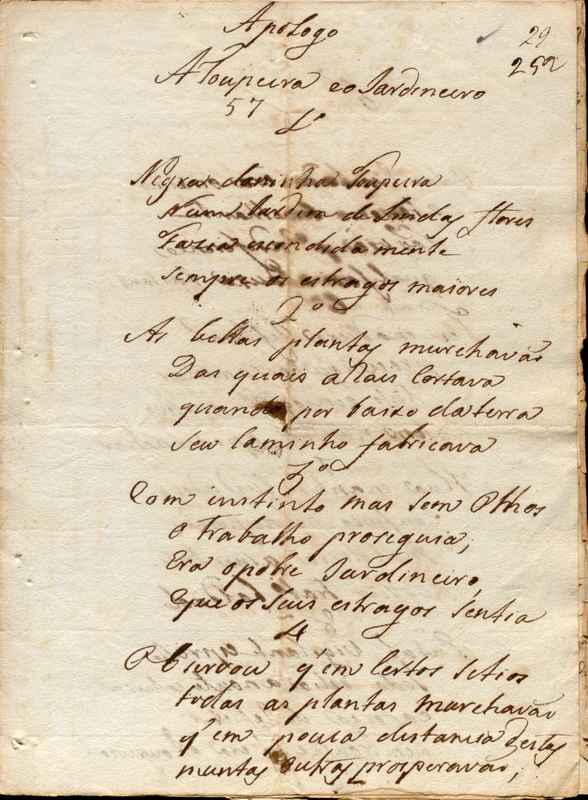 Apologo
29
252
A Toupeira e o Jardineiro
57
1º
Negra daninha Toupeira
Num Jardim de Lindas flores
Fazia escondida mente
Sempre os estragos maiores
2º
As bellas plantas murchavaõ
Das quais a Rais Cortava
quando por baixo da terra
seu Caminho fabricava
3º
Com instinto mas sem Olhos
O Trabalho proseguia;
Era o pobre Jardineiro,
Que os Seus estragos Sentia
4
Observou q' em Certos Sitios
todas as plantas murchavaõ
q' em pouca distancia destas
muntas outras prosperavaõ;